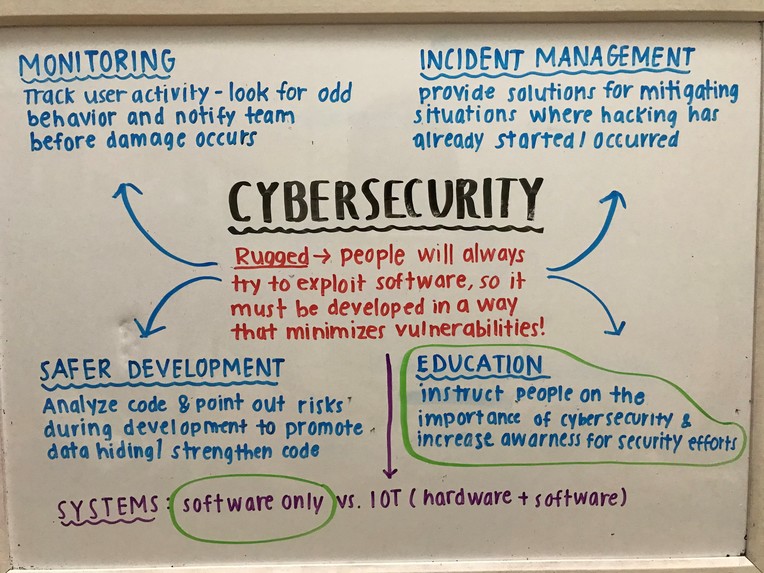 MONITORING
Track user activity - look for odd
behavior and notify team
before damage occurs
INCIDENT MANAGEMENT
provide solutions for mitigating
situations where hacking has
already started/ occurred
CYBERSECURITY
Rugged → people will always
try to exploit software, so it
must be developed in a way
that minimizes vulnerabilities!
SAFER DEVELOPMENT
Analyze code & point out risks
during development to promote
data hiding/ strengthen code
EDUCATION
instruct people on the
importance of cybersecurity &
increase awarness for security efforts
SYSTEMS: software only vs. IOT (hardware + software)